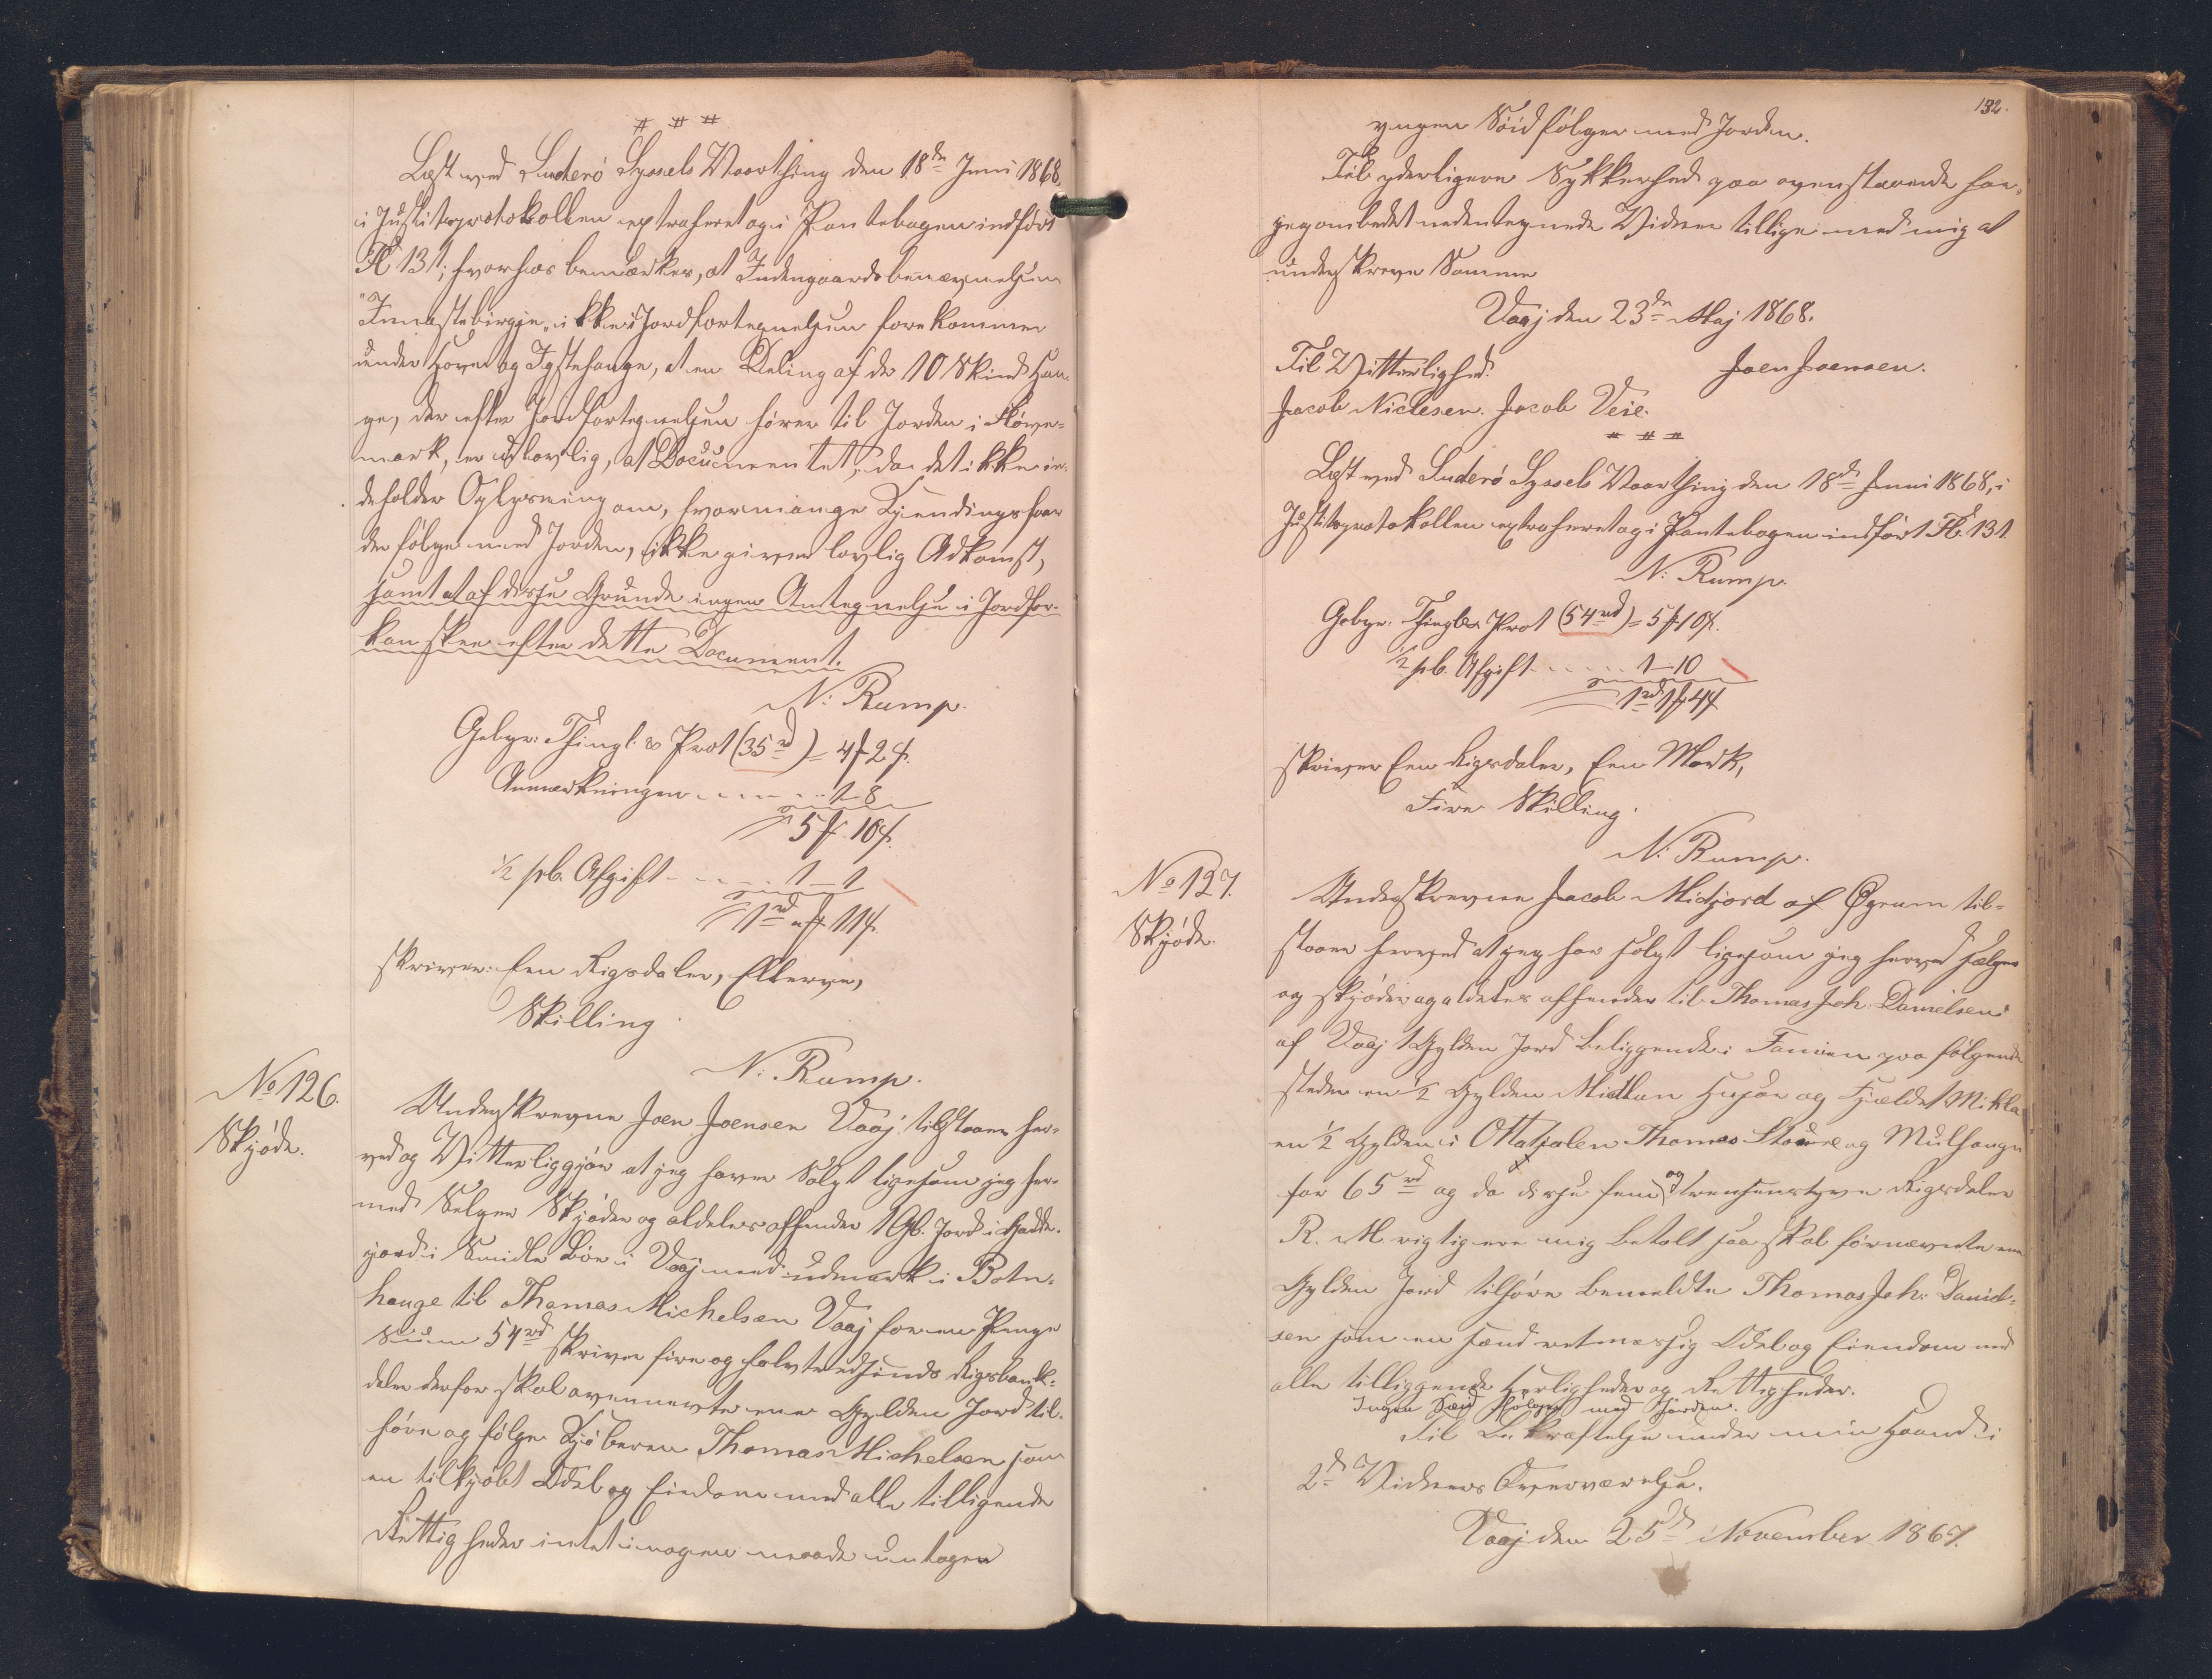 # # #
Læst ved Suderø Syssels Vaarthing den 18de Juni 1868,
i Justitsprotokollen extraheret og i Pantebogen indført
Fl 131; hvorhos bemærkes, at Indengaardsbenævnelsen
"Innastebirgje" ikke i Jordfortegnelsen forekommer
under Hove og Ystehauge, at en Deling af de 10 Skind Hau-
ge, der efter Jordfortegnelsen hører til Jorden i
mark, er ulovlig, at Documentet, da det ikke in-
deholder Oplysning om, hvormange Kjendingsfaar
der følge med Jorden, ikke giver lovlig Adkomst,
samt at af disse Grunde ingen Antegnelse i Jordfor-
kan skee efter dette Document.
N: Rump.
Gebyr: Thingl. & Prot (35rd) = 4 ƒ 2 ß.
Anmærkningen . . . . . 1 - 8
5 ƒ 10 ß.
1/2 pb. Afgift . . . . 1 - 1
1rd " ƒ 11 ß.
skriver: Een Rigsdaler, Elleve,
Skilling.
N: Rump.
No 126.
Skjøde.
Underskrevne Joen Joensen Vaaj tilstaaer her-
ved og Vitterliggjør at jeg haver Solgt ligesom jeg her-
med Selger Skjøder og aldeles afhender 1 Gl. Jord i Hadde-
gjord i Smidle Bøe i Vaaj med udmark i Botn-
hauge til Thomas Michelsen Vaaj for en Penge
Suum 54rd skriver fire og halvtredsinds Rigsbank-
daler derfor skal ovennevnte ene Gylden Jord til-
høre og følge Kjøberen Thomas Michelsen som
en tilkjøbt Odel og Eiedom med alle tilligende
Rettigheder intet i nogen maade untagen
132.
yngen Söid følger med Jorden.
Til yderligere Sykkerhed paa ovenstaaende har
jeg ombedet nedentegnede Vidner tillige med mig at
underskreve Samme
Vaaj den 23de Maj 1868.
Til Vitterlighed. Joen Joensen.
Jacob Niclesen. Jacob Veie.
# # #
Læst ved Suderø Syssels Vaarthing den 18de Juni 1868, i
Justitsprotokollen extraheret og i Pantebogen indført Fl. 131.
N: Rump.
Gebyr: Thingl & Prot (54rd) = 5 ƒ 10 ß.
1/2 pb. Afgift . . . . . 1 - 10
1rd 1 ƒ 4 ß
skriver Een Rigsdaler, Een Mark,
Fire Skilling.
N: Rump.
No 127.
Skjøde.
Underskrevne Jacob Midjord af Øgrum til-
staaer herved at jeg har solgt ligesom jeg herved sælger
og skjøder og aldeles afhender til Thomas Joh: Danielsen
af Vaaj 1 Gylden Jord beliggende i Famien paa følgende
steder en 1/2 Gylden Midtun Husar og Fjældet Mikla
en 1/2 Gylden i Ottatjalen Thomas Stoure og Mulhauge
for 65rd og da disse fem og tresenstyve Rigsdaler
R. M. rigtig ere mig betalt saa skal førnævnte ene
Gylden Jord tilhøre bemeldte Thomas Joh: Daniel-
sen som en sand retmæssig Odel og Eiendom med
alle tilliggende Herligheder og Rettigheder.
Ingen Søid følger med Jorden.
Til Bekræftelse under min Haand i
2de Vidners Overværelse.
Vaaj den 25de November 1867.